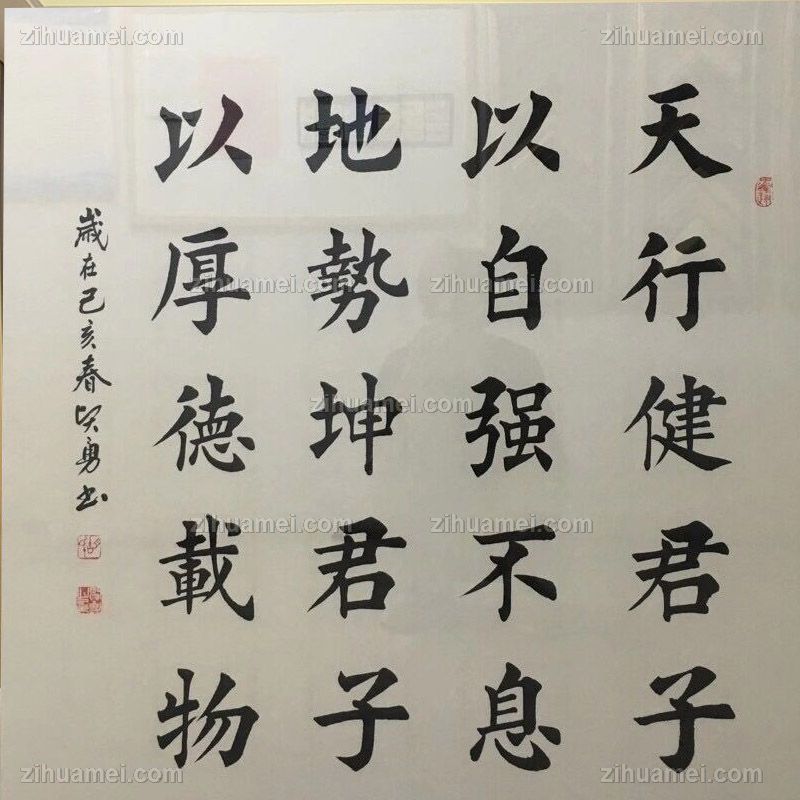 天行健君子
以自强不息
地勢坤君子
以厚德載物
歲在己亥春賢勇书
zihuamei.com
zihuamei.com
zihuamei.com
zihuamei.com
zihuamei.com
zihuamei.com
zihuamei.com
zihuamei.com
zihuamei.com
zihuamei.com
zihuamei.com
zihuamei.com
zihuamei.com
zihuamei.com